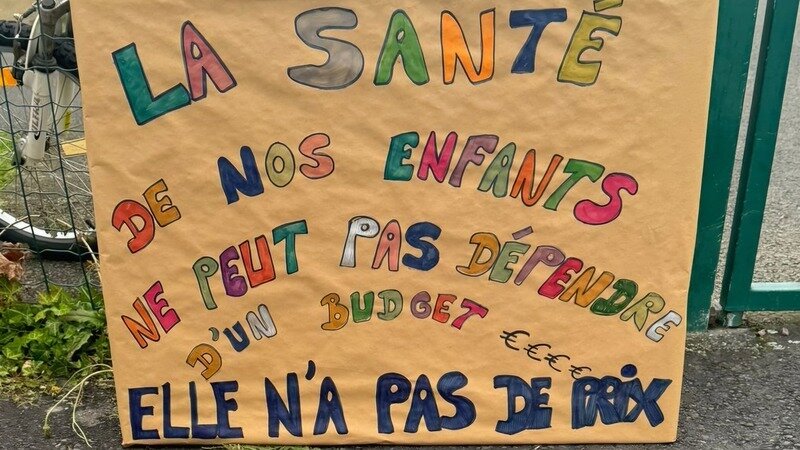 LA SANTÉ
DE NOS ENFANTS
NE PEUT PAS DÉPENDRE
D'UN BUDGET €€€€
ELLE N'A PAS DE PRIX